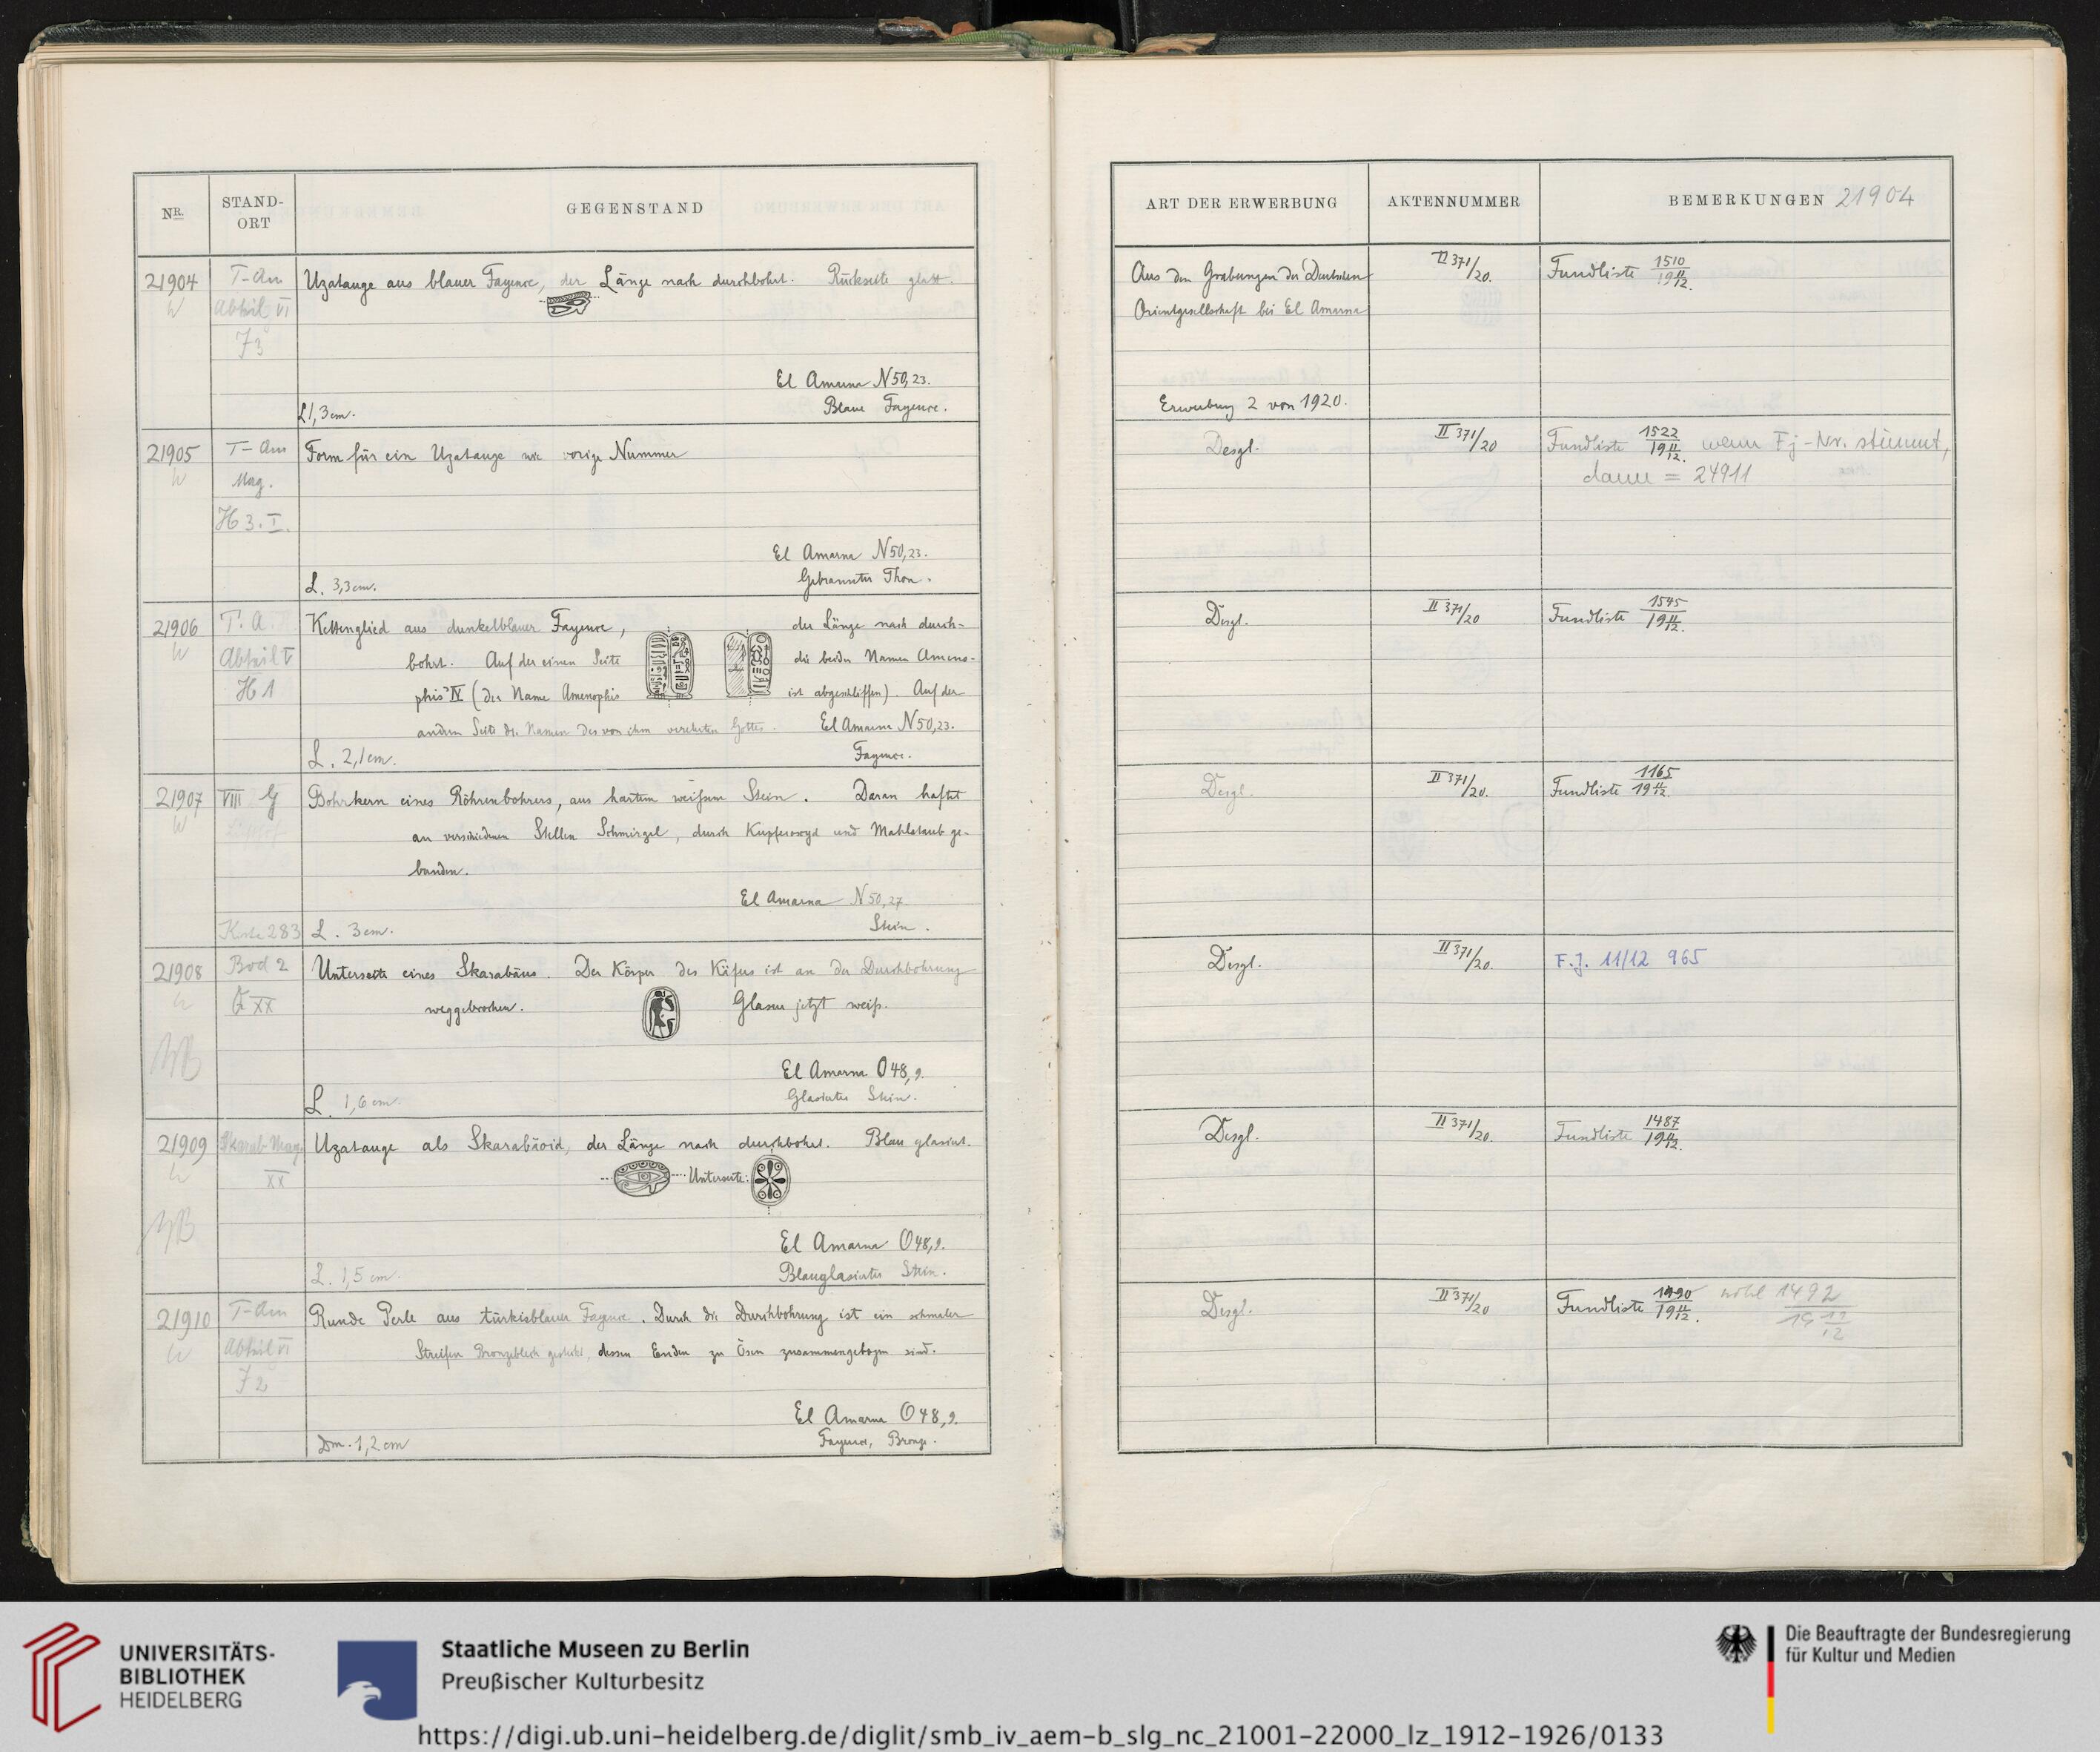 NR.
STAND-
ORT
GEGENSTAND
21904
W
T-Am
Abteil VI
J3
Uzatauge aus blauer Fayence, der Länge nach durchbohrt. Rückseite glatt.
El Amarna N50,23.
L 1,3cm.
Blaue Fayence.
21905
W
T-Am
Mag.
H 3. I.
Form für ein Uzatauge wie vorige Nummer
El Amarna N50,23.
L. 3,3cm.
Gebrannter Thon.
21906
W
T. A.
Abteil V
H 1
Kettenglied aus dunkelblauer Fayence, der Länge nach durch-
bohrt. Auf der einen Seite die beiden Namen Ameno-
phis IV (der Name Amenophis ist abgeschliffen). Auf der
andern Seite die Namen des von ihm verehrten Gottes. El Amarna N50,23.
L. 2,1cm.
Fayence.
21907
W
VIII G
Kiste 283
Bohrkern eines Röhrenbohrers, aus hartem weißem Stein. Daran haftet
an verschiedenen Stellen Schmirgel, durch Kupferoxyd und Mahlstaub ge-
bunden.
El Amarna N50,27
L. 3cm.
Stein.
21908
Bod 2
Q XX
Unterseite eines Skarabäus. Der Körper des Käfers ist an der Durchbohrung
weggebrochen. Glasur jetzt weiß.
El Amarna O48,9.
L. 1,6cm.
Glasierter Stein.
21909
Skarab Mag.
XX
Uzatauge als Skarabäoid, der Länge nach durchbohrt. Blau glasiert.
Unterseite:
El Amarna O48,9.
L. 1,5cm.
Blauglasierter Stein.
21910
W
T-Am
Abteil VI
J2
Runde Perle aus türkisblauer Fayence. Durch die Durchbohrung ist ein schmaler
Streifen Bronzeblech gesteckt, dessen Enden zu Ösen zusammengebogen sind.
El Amarna O48,9.
Dm. 1,2cm
Fayence, Bronze.
ART DER ERWERBUNG
AKTENNUMMER
BEMERKUNGEN 21904
Aus den Grabungen der Deutschen
Orientgesellschaft bei El Amarna
Erwerbung 2 von 1920.
II 371/20.
Fundliste 1510
19 11/12.
Desgl.
II 371/20
Fundliste 1522
19 11/12. wenn Fj-Nr. stimmt,
dann = 24911
Desgl.
II 371/20
Fundliste 1545
19 11/12.
Desgl.
II 371/20.
Fundliste 1165
19 11/12.
Desgl.
II 371/20.
F.J. 11/12 965
Desgl.
II 371/20.
Fundliste 1487
19 11/12.
Desgl.
II 371/20
Fundliste 1490
19 11/12. wohl 1492
19 11/12
UNIVERSITÄTS-
BIBLIOTHEK
HEIDELBERG
Staatliche Museen zu Berlin
Preußischer Kulturbesitz
Die Beauftragte der Bundesregierung
für Kultur und Medien
https://digi.ub.uni-heidelberg.de/diglit/smb_iv_aem-b_slg_nc_21001-22000_lz_1912-1926/0133